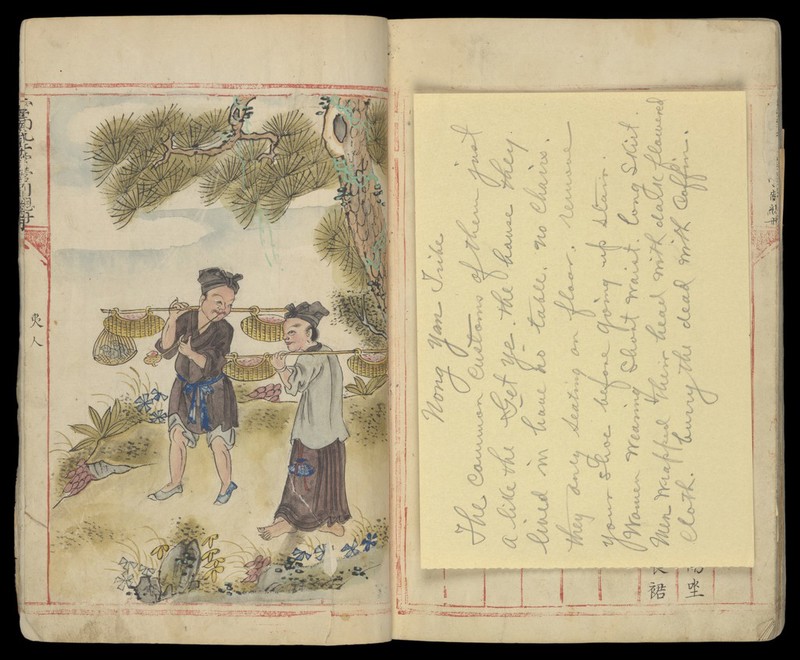 Nong Yan Tribe
The common customs of them just
a like the Get ye - the house they
lived in have no table. no chairs.
they only seating on floor. remove
your shoe before going up stair.
Women wearing short waist. long skirt.
Men wrapped their head with dark flowered
cloth. burry the dead with coffin.
人
坐
裙